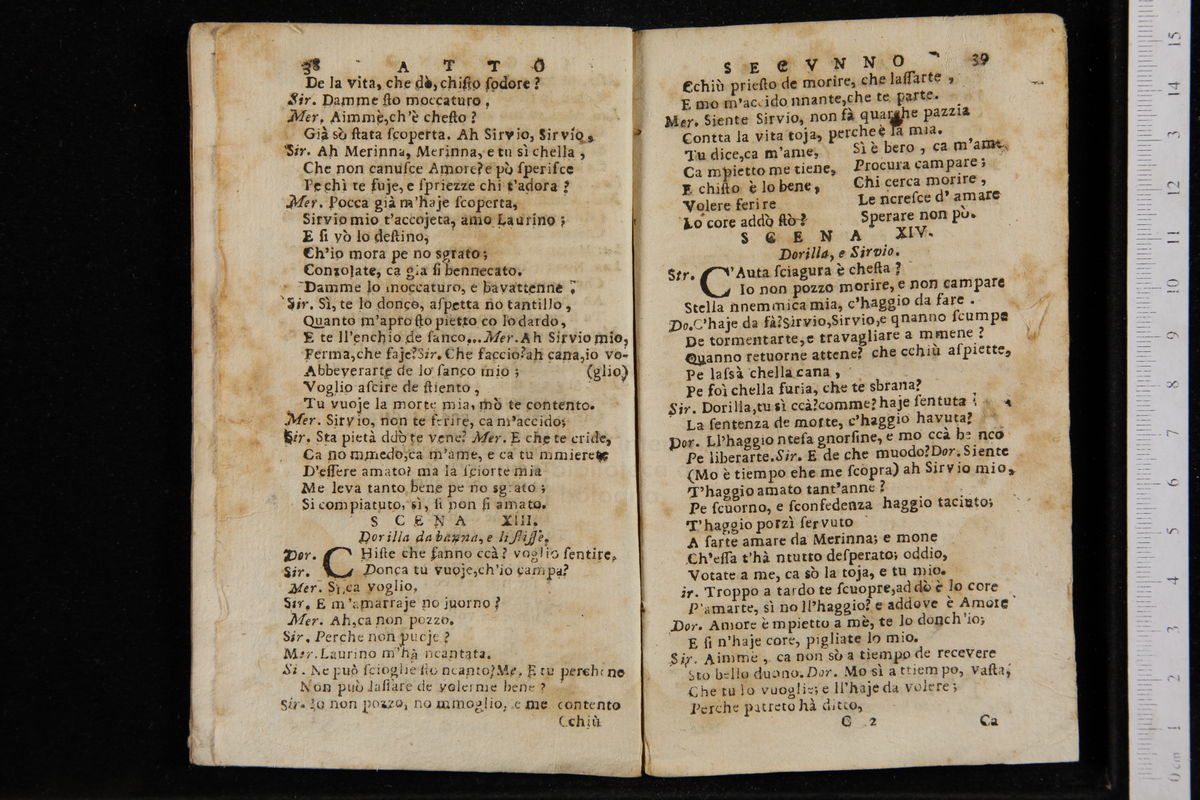 38 A T T O
De la vita, che dò, chiſto ſodore?
Sir. Damme ſto moccaturo,
Mer. Aimmè, ch'è cheſto?
Già sò ſtata ſcoperta. Ah Sirvio, Sirvio,
Sir. Ah Merinna, Merinna, e tu sì chella,
Che non canuſce Amore? e pò ſperiſce
Pe chì te fuje, e ſpriezze chi t'adora?
Mer. Pocca già m'haje ſcoperta,
Sirvio mio t'accojeta, amo Laurino;
E ſi vò lo deſtino,
Ch'io mora pe no sgrato;
Conzolate, ca gia ſi bennecato.
Damme lo moccaturo, e bavattenne;
Sir. Sì, te lo donco, aſpetta no tantillo,
Quanto m'apro ſto pietto co lo dardo,
E te ll'enchio de ſanco... Mer. Ah Sirvio mio,
Ferma, che faje? Sir. Che faccio? ah cana, io vo-
Abbeverarte de lo ſanco mio; (glio)
Voglio aſcire de ſtiento,
Tu vuoje la morte mia, mò te contento.
Mer. Sirvio, non te ferire, ca m'accido;
Sir. Sta pietà ddò te vene? Mer. E che te cride,
Ca no mmedo, ca m'ame, e ca tu mmierete
D'eſſere amato? ma la ſciorte mia
Me leva tanto bene pe no sgrato;
Si compiatuto, sì, ſi non ſi amato.
S C E N A XIII.
Dorilla da banna, e li ſtiſſe.
Dor. CHiſte che fanno ccà? voglio ſentire,
Sir. Donca tu vuoje, ch'io campa?
Mer. Sì, ca voglio.
Sir. E m'amarraje no juorno?
Mer. Ah, ca non pozzo.
Sir. Perche non puoje?
Mer. Laurino m'hà ncantata.
Si. Ne può ſcioglie ſto ncanto? Me. E tu perche no
Non può laſſare de volerme bene?
Sir. Io non pozzo, no mmoglio, e me contento
Cchiù
SECVNNO 39
Cchiù prieſto de morire, che laſſarte,
E mo m'accido nnante, che te parte.
Mer. Siente Sirvio, non fà quarche pazzia
Contta la vita toja, perche è la mia.
Tu dice, ca m'ame, Sì è bero, ca m'ame
Ca mpietto me tiene, Procura campare;
E chiſto è lo bene, Chi cerca morire,
Volere ferire Le ncreſce d'amare
Lo core addò ſtò? Sperare non pò.
S C E N A XIV.
Dorilla, e Sirvio.
Sir. C'Auta ſciagura è cheſta?
Io non pozzo morire, e non campare
Stella nnemmica mia, c'haggio da fare.
Do. C'haje da fà? Sirvio, Sirvio, e qnanno ſcumpe
De tormentarte, e travagliare a mmene?
Quanno retuorne attene? che cchiù aſpiette,
Pe laſsà chella cana,
Pe foì chella furia, che te sbrana?
Sir. Dorilla, tu sì ccà? comme? haje ſentuta
La ſentenza de morte, c'haggio havuta?
Dor. Ll'haggio nteſa gnorſine, e mo ccà benco
Pe liberarte. Sir. E de che muodo? Dor. Siente
(Mo è tiempo ehe me ſcopra) ah Sirvio mio,
T'haggio amato tant'anne?
Pe ſcuorno, e ſconfedenza haggio taciuto;
T'haggio porzì ſervuto
A farte amare da Merinna; e mone
Ch'eſſa t'hà ntutto deſperato; oddio,
Votate a me, ca sò la toja, e tu mio.
ir. Troppo a tardo te ſcuopre, ad dò è lo core
P'amarte, sì no ll'haggio? e addove è Amore
Dor. Amore è mpietto a mè, te lo donch'io;
E ſi n'haje core, pigliate lo mio.
Sir. Aimmè, ca non sò a tiempo de recevere
Sto bello duono. Dor. Mo sì a ttiempo, vaſta,
Che tu lo vuoglie; e ll'haje da volere;
Perche patreto hà ditto,
C 2 Ca